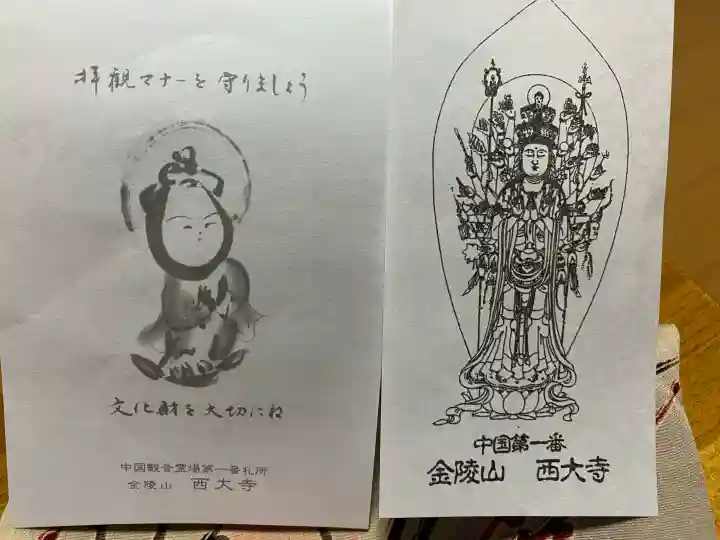 拝観マナーを守りましょう
文化財を大切にね
中国観音霊場第一番札所
金陵山 西大寺
中国第一番
金陵山 西大寺